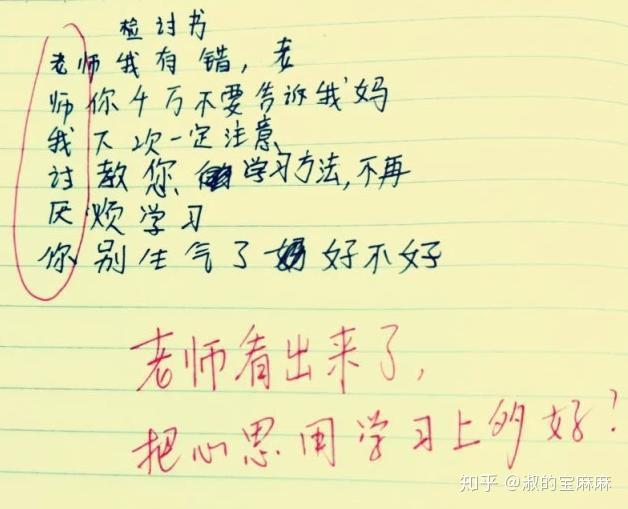 检讨书
老师我有错,老
师你千万不要告诉我妈
我下次一定注意
讨教您学习方法,不再
厌烦学习
你别生气了好不好
老师看出来了,
把心思用学习上多好?
知乎 @淑的宝麻麻